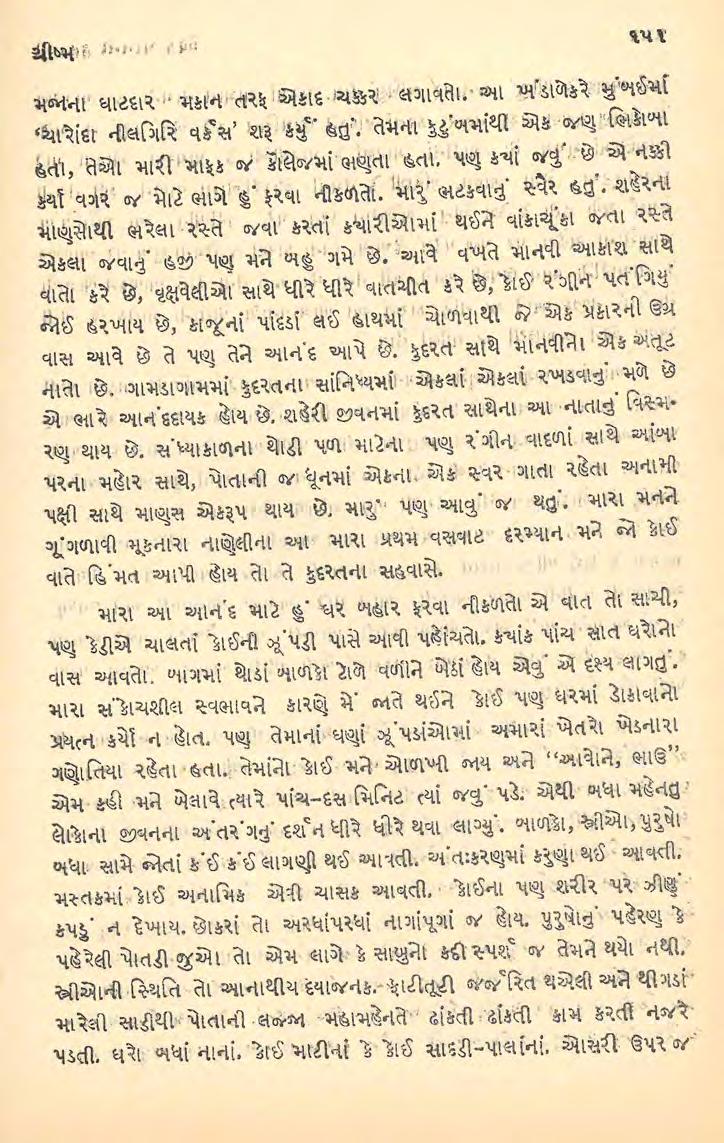 ગ્રીષ્મ ૧૫૧
મજાના ઘાટદાર મકાન તરફ એકાદ ચક્કર લગાવતો. આ ખંડાળેકરે મુંબઈમાં
‘ચારોંદા નીલગિરિ વર્કસ’ શરૂ કર્યું હતું. તેમના કુટુંબમાંથી એક જણ ભિકોબા
હતા, તેઓ મારી માફક જ કૉલેજમાં ભણતા હતા. પણ કયાં જવું છે એ નક્કી
કર્યા વગર જ મોટે ભાગે હું ફરવા નીકળતો. મારું ભટકવાનું સ્વૈર હતું. શહેરના
માણસોથી ભરેલા રસ્તે જવા કરતાં ક્યારીઓમાં થઈને વાંકાચૂંકા જતા રસ્તે
એકલા જવાનું હજી પણ મને બહુ ગમે છે. આવે વખતે માનવી આકાશ સાથે
વાતો કરે છે, વૃક્ષવેલીઓ સાથે ધીરે ધીરે વાતચીત કરે છે, કોઈ રંગીન પતંગિયું
જોઈ હરખાય છે, કાજૂનાં પાંદડાં લઈ હાથમાં ચોળવાથી જે એક પ્રકારની ઉગ્ર
વાસ આવે છે તે પણ તેને આનંદ આપે છે. કુદરત સાથે માનવીનો એક અતૂટ
નાતો છે. ગામડાગામમાં કુદરતના સાંનિધ્યમાં એકલાં એકલાં રખડવાનું મળે છે
એ ભારે આનંદદાયક હોય છે. શહેરી જીવનમાં કુદરત સાથેના આ નાતાનું વિસ્મ-
રણ થાય છે. સંધ્યાકાળના થોડી પળ માટેના પણ રંગીન વાદળાં સાથે આંબા
પરના મહોર સાથે, પોતાની જ ધૂનમાં એકના એક સ્વર ગાતા રહેતા અનામી
પક્ષી સાથે માણસ એકરૂપ થાય છે. મારું પણ આવું જ થતું. મારા મનને
ગૂંગળાવી મૂકનારા નાણેલીના આ મારા પ્રથમ વસવાટ દરમ્યાન મને જો કોઈ
વાતે હિંમત આપી હોય તો તે કુદરતના સહવાસે.
મારા આ આનંદ માટે હું ઘર બહાર ફરવા નીકળતો એ વાત તો સાચી,
પણ કેડીએ ચાલતાં કોઈની ઝૂંપડી પાસે આવી પહોંચતો. ક્યાંક પાંચ સાત ઘરોનો
વાસ આવતો. બાગમાં થોડાં બાળકો ટોળે વળીને બેઠાં હોય એવું એ દૃશ્ય લાગતું.
મારા સંકોચશીલ સ્વભાવને કારણે મેં જાતે થઈને કોઈ પણ ઘરમાં ડોકાવાનો
પ્રયત્ન કર્યો ન હોત. પણ તેમાનાં ઘણાં ઝૂંપડાંઓમાં અમારાં ખેતરો ખેડનારા
ગણોતિયા રહેતા હતા. તેમાંનો કોઈ મને ઓળખી જાય અને “આવોને, ભાઉ”
એમ કહી મને બેલાવે ત્યારે પાંચ–દસ મિનિટ ત્યાં જવું પડે. એથી બધા મહેનતુ
લોકોના જીવનના અંતરંગનું દર્શન ધીરે ધીરે થવા લાગ્યું. બાળકો, સ્ત્રીઓ, પુરુષો
બધા સામે જોતાં કંઈ કંઈ લાગણી થઈ આવતી. અંતઃકરણમાં કરુણા થઈ આવતી.
મસ્તકમાં કોઈ અનામિક એવી ચાસક આવતી. કોઈના પણ શરીર પર ઝીણું
કપડું ન દેખાય. છોકરાં તો અરધાંપરધાં નાગાંપૂગાં જ હોય. પુરુષોનું પહેરણ કે
પહેરેલી પોતડી જુઓ તો એમ લાગે કે સાબુનો કદી સ્પર્શ જ તેમને થયો નથી.
સ્ત્રીઓની સ્થિતિ તો આનાથીય દયાજનક. ફાટીતૂટી જર્જરિત થએલી અને થીગડાં
મારેલી સાડીથી પોતાની લજ્જા મહામહેનતે ઢાંકતી ઢાંકતી કામ કરતી નજરે
પડતી. ઘરો બધાં નાનાં. કોઈ માટીનાં કે કોઈ સાદડી–પાલાંનાં. ઓસરી ઉપર જ